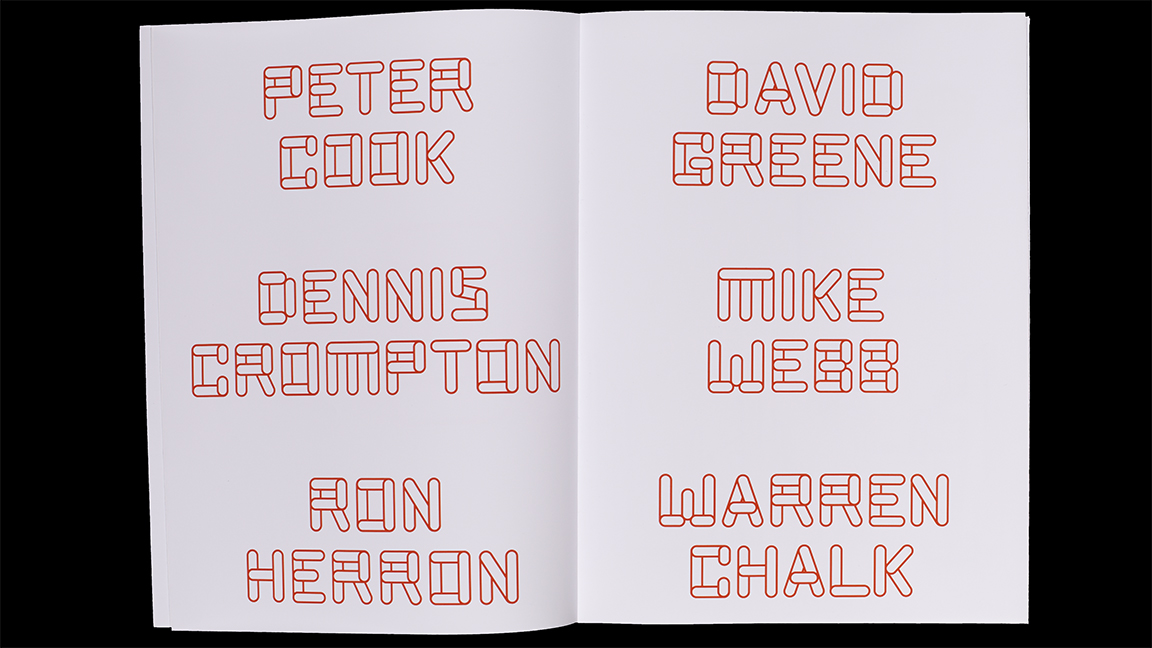 PETER
COOK
DENNIS
CROMPTON
RON
HERRON
DAVID
GREENE
MIKE
WEBB
WARREN
CHALK